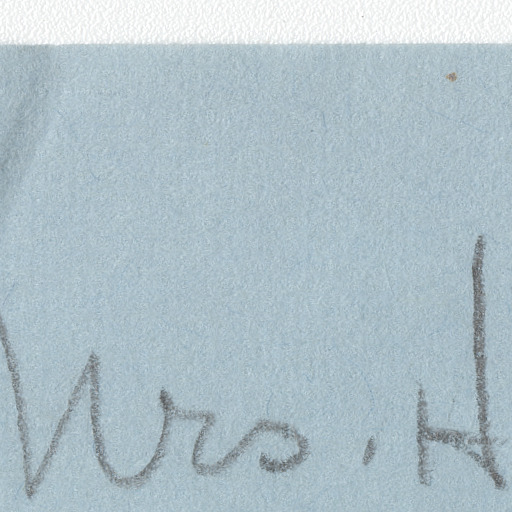 Mrs. H